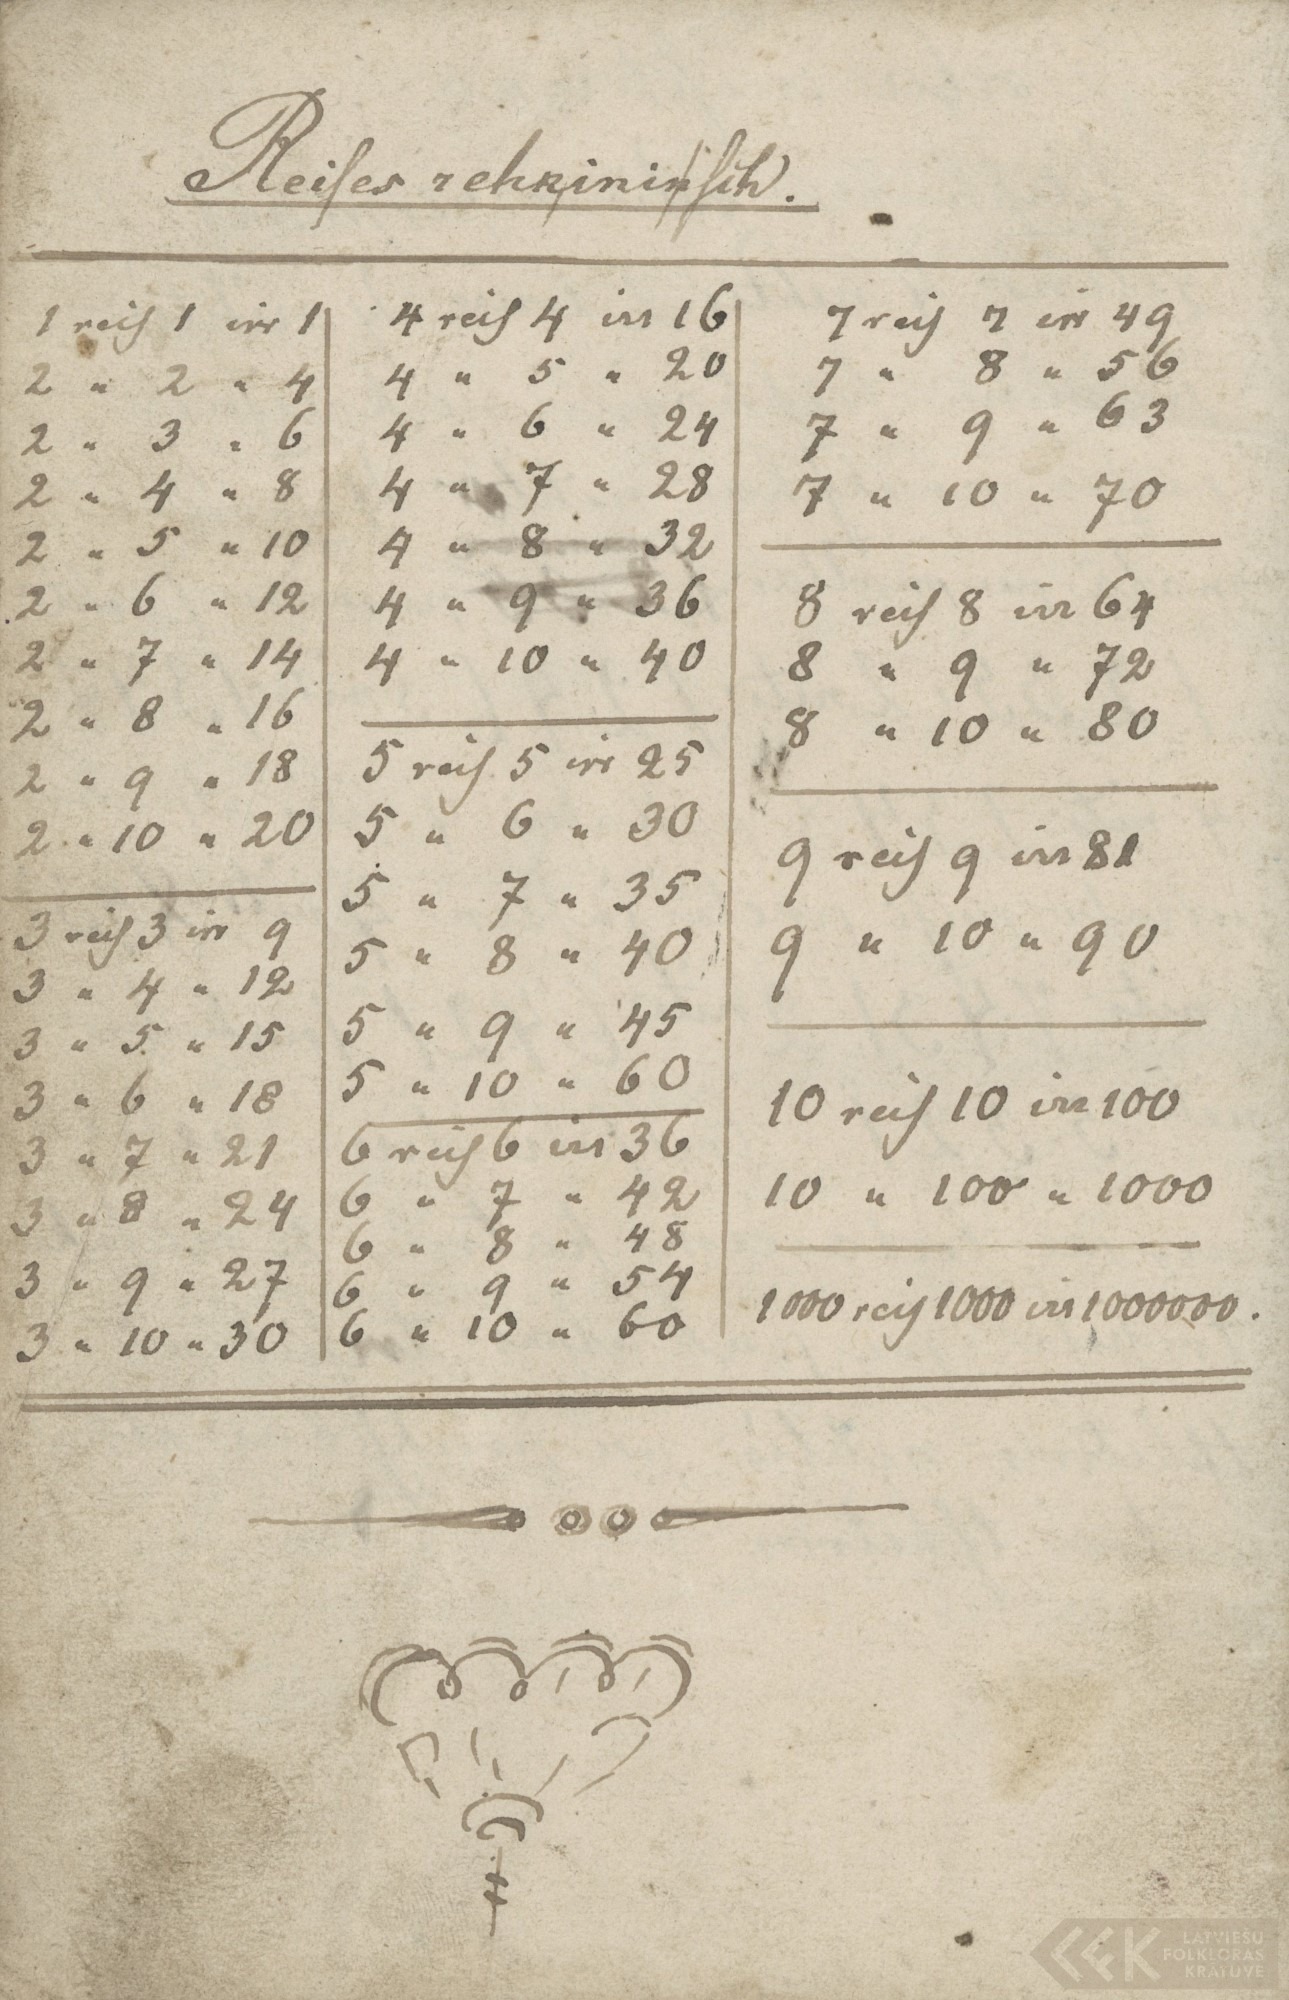 Reiſes rehķininſch.
1 reiſ 1 irr 1
2 " 2 " 4
2 " 3 " 6
2 " 4 " 8
2 " 5 " 10
2 " 6 " 12
2 " 7 " 14
2 " 8 " 16
2 " 9 " 18
2 " 10 " 20
3 reiſ 3 irr 9
3 " 4 " 12
3 " 5 " 15
3 " 6 " 18
3 " 7 " 21
3 " 8 " 24
3 " 9 " 27
3 " 10 " 30
4 reiſ 4 irr 16
4 " 5 " 20
4 " 6 " 24
4 " 7 " 28
4 " 8 " 32
4 " 9 " 36
4 " 10 " 40
5 reiſ 5 irr 25
5 " 6 " 30
5 " 7 " 35
5 " 8 " 40
5 " 9 " 45
5 " 10 " 60
6 reiſ 6 irr 36
6 " 7 " 42
6 " 8 " 48
6 " 9 " 54
6 " 10 " 60
7 reiſ 7 irr 49
7 " 8 " 56
7 " 9 " 63
7 " 10 " 70
8 reiſ 8 irr 64
8 " 9 " 72
8 " 10 " 80
9 reiſ 9 irr 81
9 " 10 " 90
10 reiſ 10 irr 100
10 " 100 " 1000
1000 reiſ 1000 irr 1000000.
LATVIEŠU
FOLKLORAS
KRĀTUVE